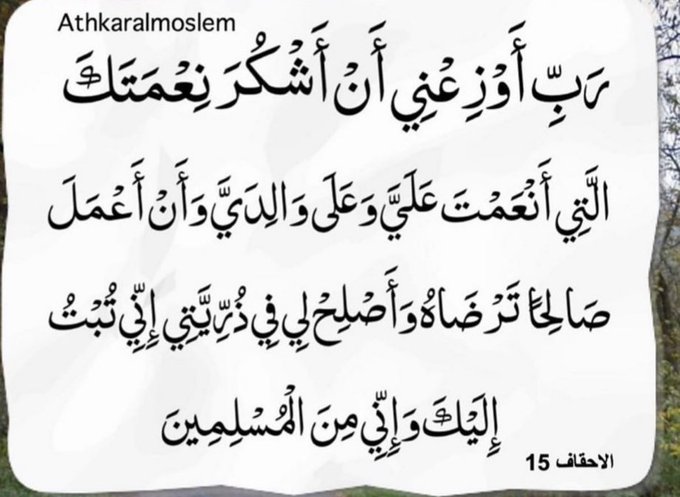 Athkaralmoslem
رَبِّ أَوْزِعْنِي أَنْ أَشْكُرَ نِعْمَتَكَ
الَّتِي أَنْعَمْتَ عَلَيَّ وَعَلَى وَالِدَيَّ وَأَنْ أَعْمَلَ
صَالِحًا تَرْضَاهُ وَأَصْلِحْ لِي فِي ذُرِّيَّتِي إِنِّي تُبْتُ
إِلَيْكَ وَإِنِّي مِنَ الْمُسْلِمِينَ
الاحقاف 15